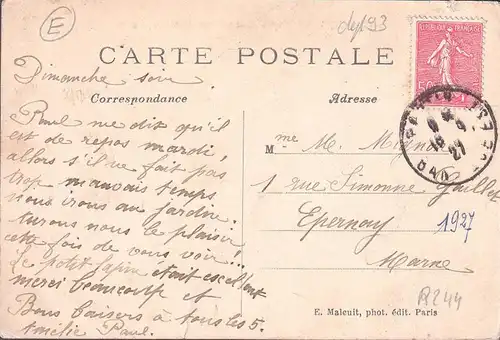 E
dep193
CARTE POSTALE
RÉPUBLIQUE FRANÇAISE
Dimanche soir
Correspondance
Adresse
Paul me dit qu'il
est de repos mardi,
alors s'il ne fait pas
trop mauvais temps
nous irons au jardin.
nous le plaisir
cette fois de vous voir!..
Le petit lapin était excellent
merci beaucoup et
Bons baisers à tous les 5.
Amélie Paul.
Mme M. Mignon
1 rue Simonne
Epernay
Marne
1927
R244
E. Malcuit, phot. édit. Paris